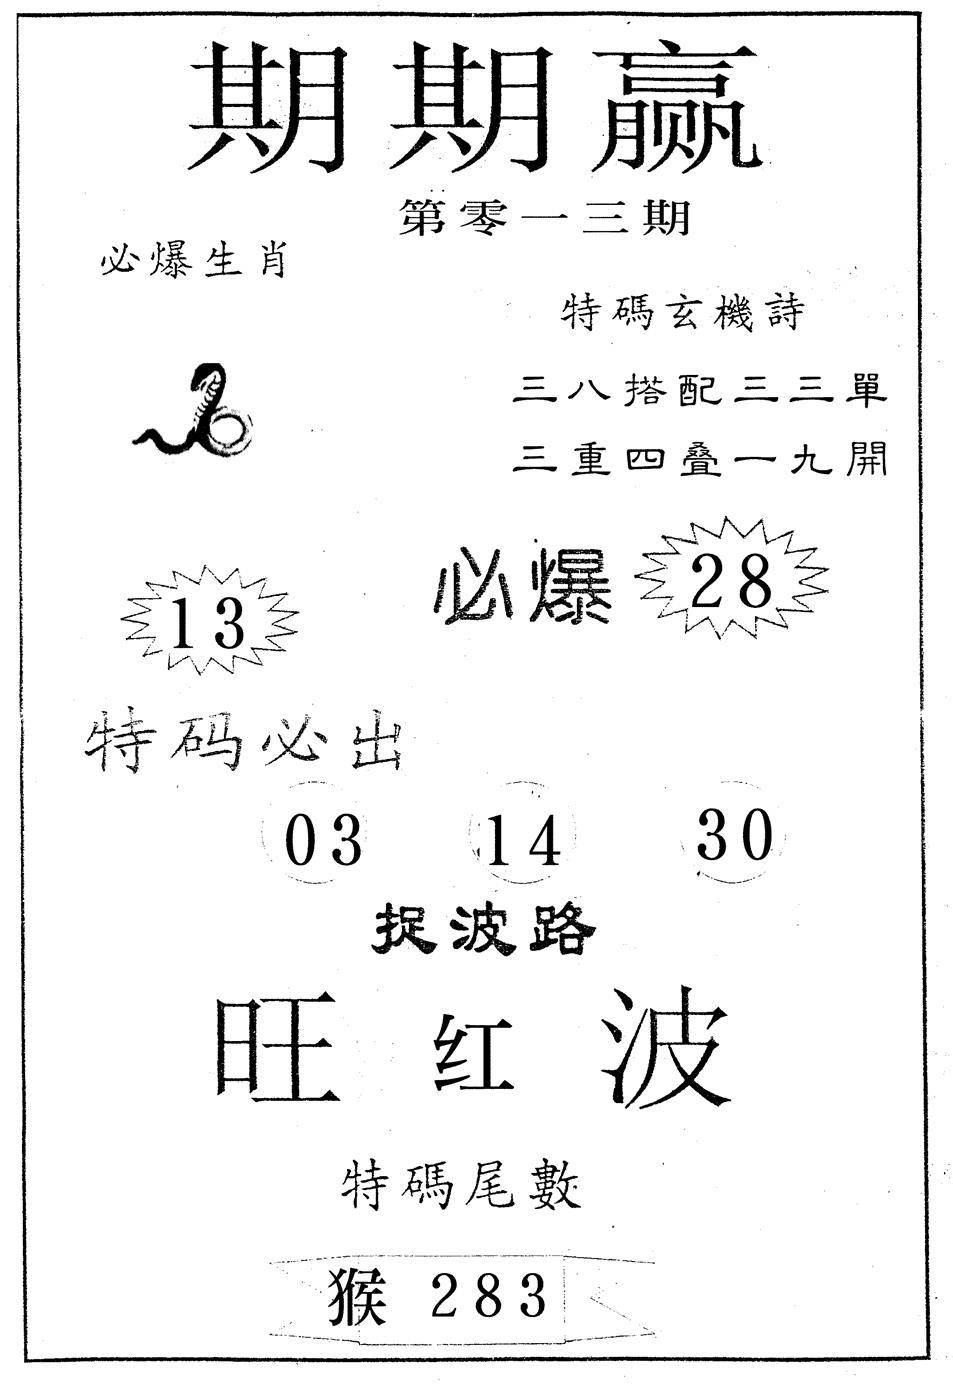 期期赢
第零一三期
必爆生肖
特碼玄機詩
三八搭配三三單
三重四叠一九開
必爆 28
13
特码必出
03 14 30
捉波路
旺红波
特碼尾數
猴 283